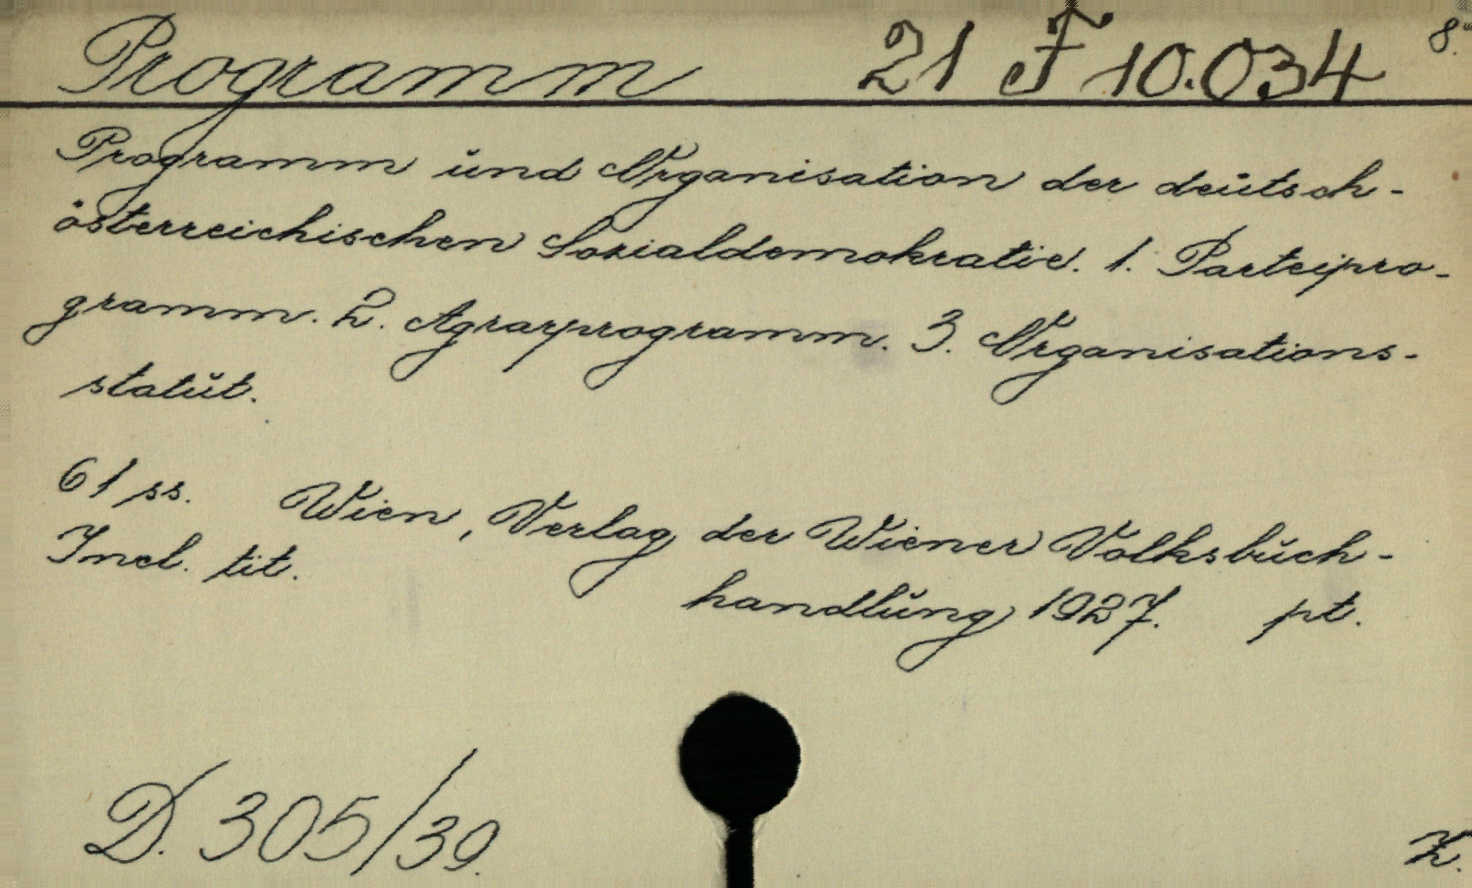 Programm 21 F 10.034 8.°
Programm und Organisation der deutsch-
österreichischen Sozialdemokratie. 1. Parteipro-
gramm. 2. Agrarprogramm. 3. Organisations-
statut.
61 ss. Wien, Verlag der Wiener Volksbuch-
Incl. tit. handlung 1927. pt.
D. 305/39.
Z.